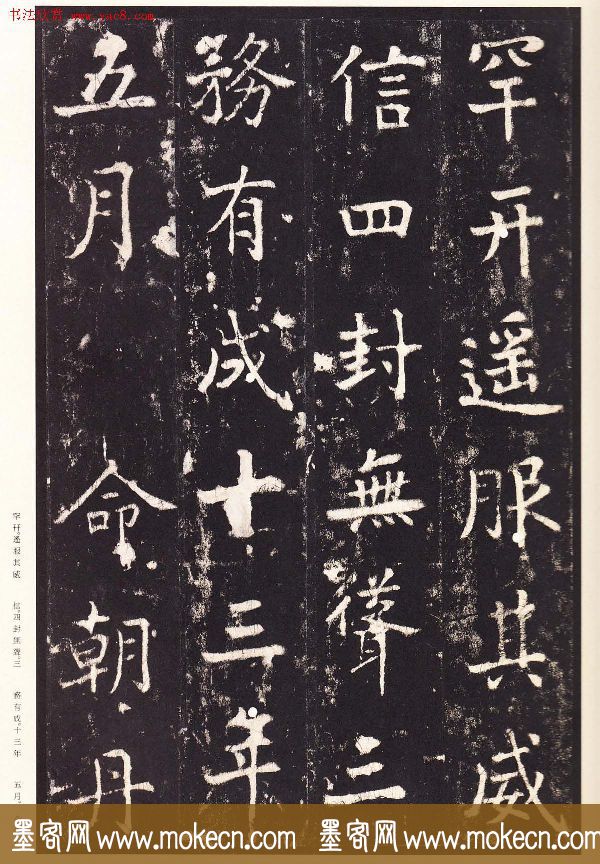 书法欣赏 www.yac8.com
罕幵遥服其威
信四封無聳三
務有成十三年
五月 命朝丹
罕幵遥服其威 信。四封無聳。三 務有成。十三年 五月
墨客网 www.mokecn.com 墨客网 www.mokecn.com